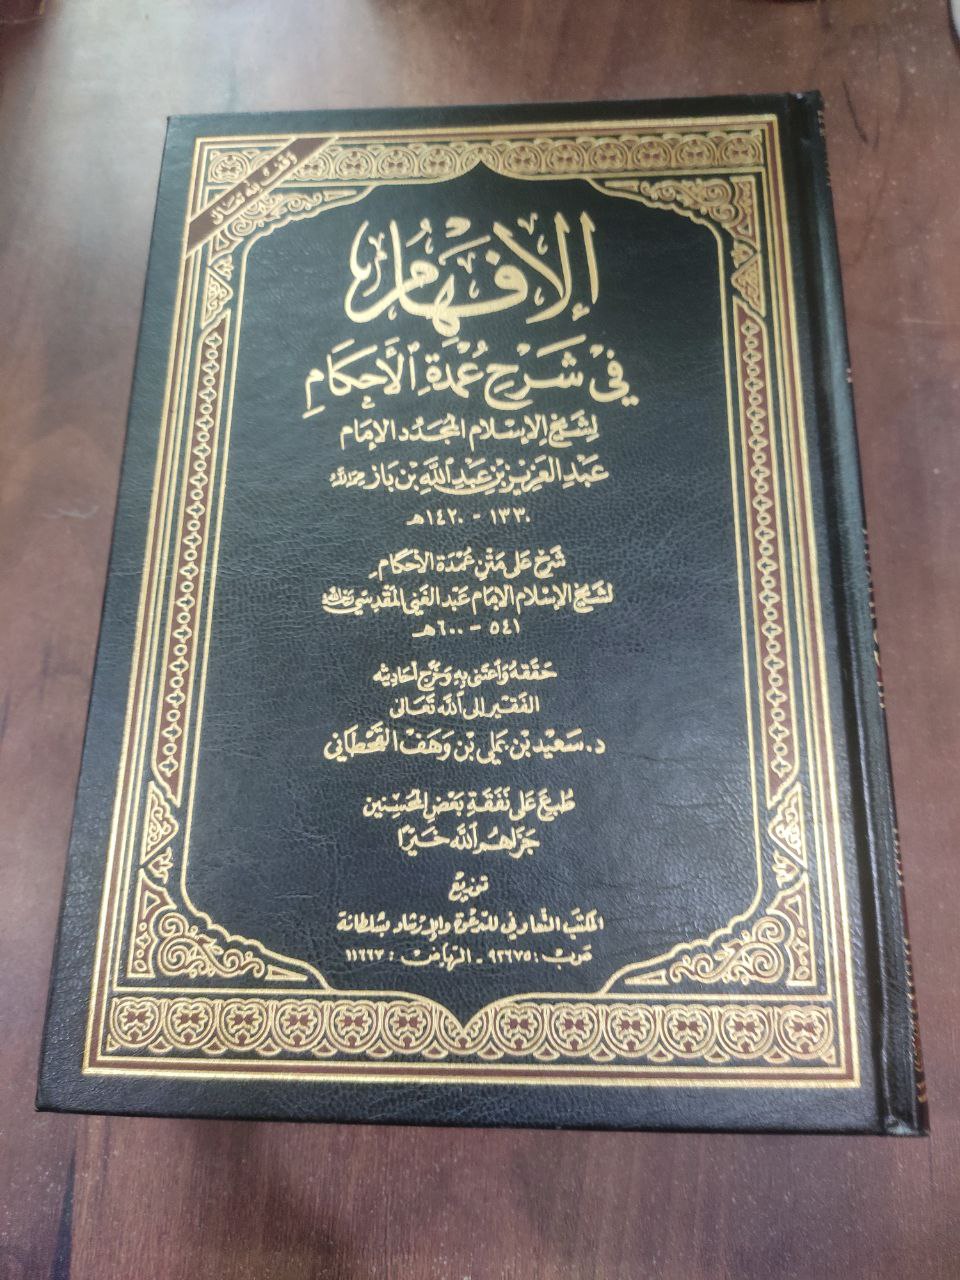 وقف لله تعالى
الإِفْهَامُ
فِي شَرْحِ عُمْدَةِ الأَحْكَامِ
لِشَيْخِ الإِسْلَامِ المُجَدِّد الإِمَام
عَبْدِ العَزِيزِ بْنِ عَبْدِ اللَّهِ بْنِ بَاز رحمه الله
١٣٣٠ - ١٤٢٠هـ
شَرْح عَلَى مَتْنِ عُمْدَة الأَحْكَامِ
لِشَيْخ الإِسْلَام الإِمَام عَبْد الغَنِي المَقْدِسِي رحمه الله
٥٤١ - ٦٠٠هـ
حَقَّقَهُ وَاعْتَنَى بِهِ وَخَرَّجَ أَحَادِيثَه
الفَقِير إِلَى اللَّه تَعَالَى
د. سَعِيد بْن عَلِي بْن وَهَف القَحْطَانِي
طُبِعَ عَلَى نَفَقَةِ بَعْض المُحْسِنِين
جَزَاهُم اللَّه خَيْرًا
تَوزِيع
المكتب التعاوني للدعوة والإرشاد بسلطانة
ص.ب : ٩٢٦٧٥ - الرياض : ١١٦٦٣